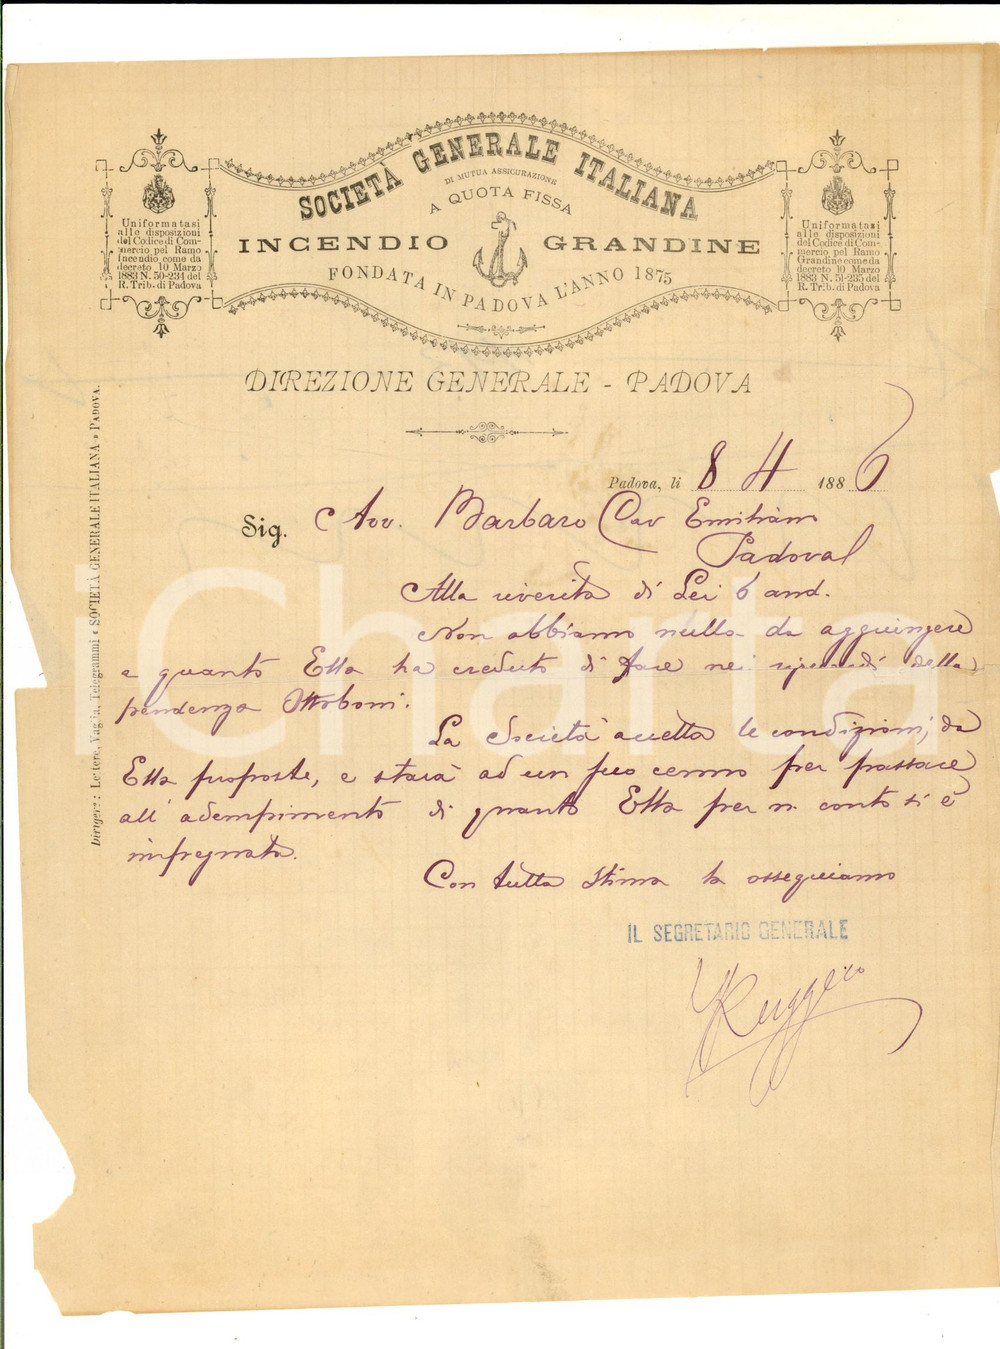 SOCIETÀ GENERALE ITALIANA
DI MUTUA ASSICURAZIONE
A QUOTA FISSA
INCENDIO GRANDINE
FONDATA IN PADOVA L'ANNO 1875
Uniformatasi
alle disposizioni
del Codice di Com-
mercio pel Ramo
Incendio come da
decreto 10 Marzo
1883 N. 50-234 del
R. Trib. di Padova
Uniformatasi
alle disposizioni
del Codice di Com-
mercio pel Ramo
Grandine come da
decreto 10 Marzo
1883 N. 51-235 del
R. Trib. di Padova
DIREZIONE GENERALE - PADOVA
Dirigere: Lettere, Vaglia, Telegrammi « SOCIETÀ GENERALE ITALIANA » PADOVA.
Padova, li 8 4 1886
Sig. Avv. Barbaro Cav Emiliano
Padova
Alla riverita di Lei 6 and.
Non abbiamo nulla da aggiungere
a quanto Ella ha creduto di fare nei riguardi della
pendenza Ottoboni.
La Società accetta le condizioni, da
Ella proposte, e starà ad un suo cenno per passare
all'adempimento di quanto Ella per n. conto si è
impegnata.
Con tutta stima la ossequiamo
IL SEGRETARIO GENERALE
Ruggero
iCharta